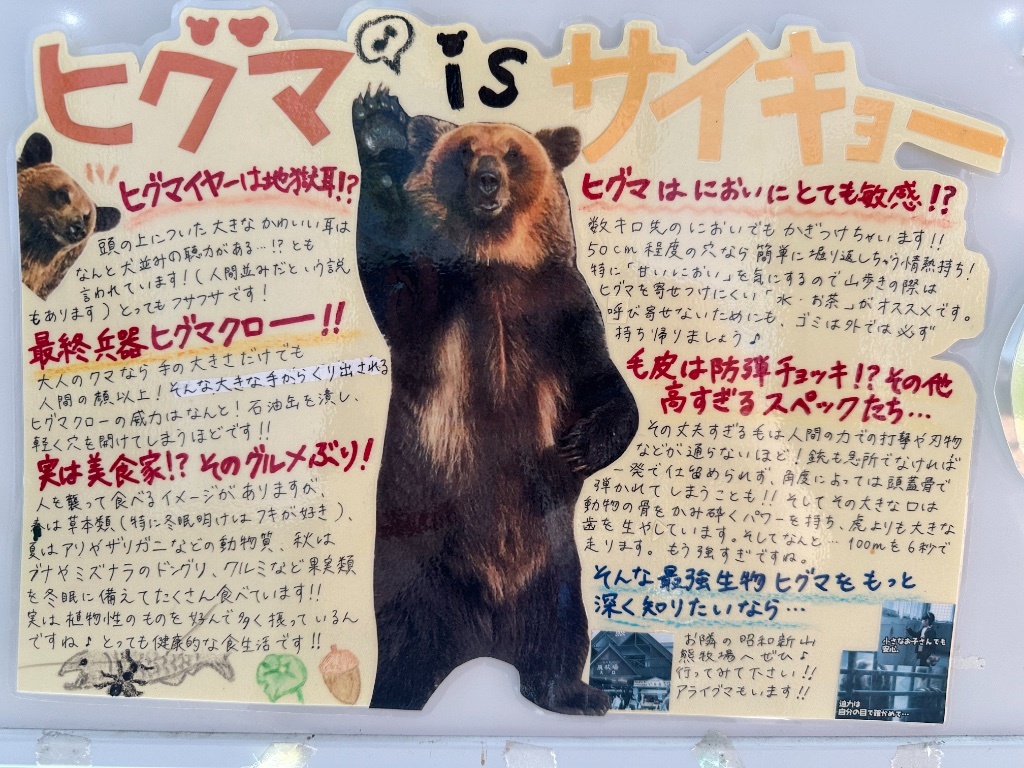 ヒグマ is サイキョー
ヒグマイヤーは地獄耳!?
頭の上についた大きなかわいい耳は
なんと犬並みの聴力がある…!?とも
言われています!(人間並みだという説
もあります)とってもフサフサです!
最終兵器ヒグマクロー!!
大人のクマなら手の大きさだけでも
人間の顔以上!そんな大きな手からくり出される
ヒグマクローの威力はなんと!石油缶を潰し、
軽く穴を開けてしまうほどです!!
実は美食家!?そのグルメぶり!
人を襲って食べるイメージがありますが、
春は草本類(特に冬眠明けはフキが好き)、
夏はアリやザリガニなどの動物質、秋は
ブナやミズナラのドングリ、クルミなど果実類
を冬眠に備えてたくさん食べています!!
実は植物性のものを好んで多く摂っているん
ですね♪とっても健康的な食生活です!!
ヒグマはにおいにとても敏感!?
数キロ先のにおいでもかぎつけちゃいます!!
50cm程度の穴なら簡単に堀り返しちゃう情熱持ち!
特に「甘いにおい」を気にするので山歩きの際は
ヒグマを寄せつけにくい「水・お茶」がオススメです。
呼び寄せないためにも、ゴミは外では必ず
持ち帰りましょう♪
毛皮は防弾チョッキ!?その他
高すぎるスペックたち…
その丈夫すぎる毛は人間の力での打撃や刃物
などが通らないほど!銃も急所でなければ
一発で仕留められず、角度によっては頭蓋骨で
弾かれてしまうことも!!そしてその大きな口は
動物の骨をかみ砕くパワーを持ち、虎よりも大きな
歯を生やしています。そしてなんと…100mを6秒で
走ります。もう強すぎですね。
そんな最強生物ヒグマをもっと
深く知りたいなら…
お隣の昭和新山
熊牧場へぜひ♪
行ってみて下さい!!
アライグマもいます!!
小さなお子さんでも
安心
迫力は
自分の目で確かめて…